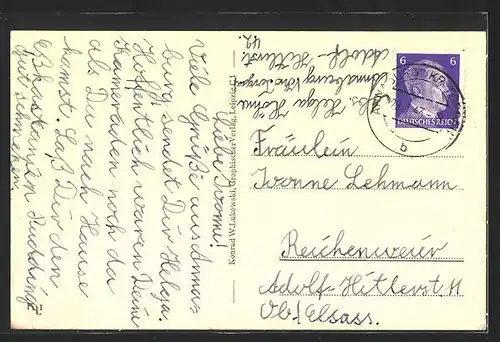 Liebe Ivonne!
Viele Grüße aus Anna-
burg sendet Dir Helga.
Hoffentlich waren Deine
Kameraden noch da
als Du nach Hause
kamst. Laß Dir den
Kastanien Pudding
gut schmecken.
Abs. Helga
Annaburg Kr. Torgau
Adolf-Hitlerst.
42.
Konrad W. Lukowski, Graphischer Verlag, Leipzig C 1
6 6
DEUTSCHES REICH
b
Fräulein
Ivonne Lehmann
Reichenweier
Adolf-Hitlerst. 11
Ob/Elsass.